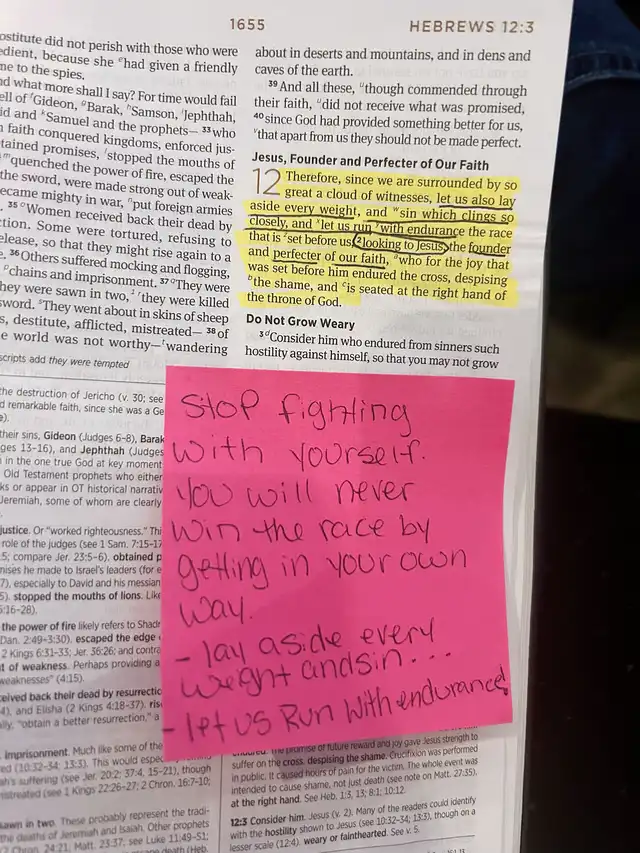 1655
HEBREWS 12:3
ostitute did not perish with those who were
edient, because she ᵉhad given a friendly
me to the spies.
nd what more shall I say? For time would fail
ell of ᶠGideon, ᵍBarak, ʰSamson, ⁱJephthah,
id and ᵏSamuel and the prophets— 33 who
faith conquered kingdoms, enforced jus-
tained promises, ˡstopped the mouths of
ᵐquenched the power of fire, escaped the
the sword, were made strong out of weak-
ecame mighty in war, ⁿput foreign armies
35 ᵒWomen received back their dead by
ction. Some were tortured, refusing to
elease, so that they might rise again to a
e. 36 Others suffered mocking and flogging,
ᵖchains and imprisonment. 37 ᵠThey were
they were sawn in two, ʳthey were killed
sword. ˢThey went about in skins of sheep
s, destitute, afflicted, mistreated— 38 of
e world was not worthy—ᵗwandering
scripts add they were tempted
about in deserts and mountains, and in dens and
caves of the earth.
39 And all these, ᵘthough commended through
their faith, ᵘdid not receive what was promised,
40 since God had provided something better for us,
ᵛthat apart from us they should not be made perfect.
Jesus, Founder and Perfecter of Our Faith
12 Therefore, since we are surrounded by so
great a cloud of witnesses, let us also lay
aside every weight, and ʷsin which clings so
closely, and ˣlet us run ʸwith endurance the race
that is ᶻset before us, 2 looking to Jesus, the founder
and perfecter of our faith, ᵃwho for the joy that
was set before him endured the cross, despising
ᵇthe shame, and ᶜis seated at the right hand of
the throne of God.
Do Not Grow Weary
3 ᵈConsider him who endured from sinners such
hostility against himself, so that you may not grow
Stop fighting
with yourself.
You will never
win the race by
getting in your own
way.
- lay aside every
weight and sin...
- let us Run with endurance!
the destruction of Jericho (v. 30; see
d remarkable faith, since she was a Ge
e).
their sins, Gideon (Judges 6–8), Barak
ges 13–16), and Jephthah (Judges
n in the one true God at key moment
Old Testament prophets who either
ks or appear in OT historical narrativ
Jeremiah, some of whom are clearly
justice. Or "worked righteousness." Thi
role of the judges (see 1 Sam. 7:15–17
:5; compare Jer. 23:5–6). obtained p
mises he made to Israel's leaders (for e
7), especially to David and his messian
5). stopped the mouths of lions. Like
6:16–28).
the power of fire likely refers to Shadr
Dan. 2:49–3:30). escaped the edge
2 Kings 6:31–33; Jer. 36:26; and contra
t of weakness. Perhaps providing a
weaknesses" (4:15).
ceived back their dead by resurrectio
4), and Elisha (2 Kings 4:18–37). rise
ally, "obtain a better resurrection," a
imprisonment. Much like some of the
ed (10:32–34; 13:3). This would espec
ah's suffering (see Jer. 20:2; 37:4, 15–21), though
istreated (see 1 Kings 22:26–27; 2 Chron. 16:7–10;
awn in two. These probably represent the tradi-
the deaths of Jeremiah and Isaiah. Other prophets
2 Chron. 24:21; Matt. 23:37; see Luke 11:49–51;
endured. The promise of future reward and joy gave Jesus strength to
suffer on the cross. despising the shame. Crucifixion was performed
in public. It caused hours of pain for the victim. The whole event was
intended to cause shame, not just death (see note on Matt. 27:35).
at the right hand. See Heb. 1:3, 13; 8:1; 10:12.
12:3 Consider him. Jesus (v. 2). Many of the readers could identify
with the hostility shown to Jesus (see 10:32–34; 13:3), though on a
lesser scale (12:4). weary or fainthearted. See v. 5.